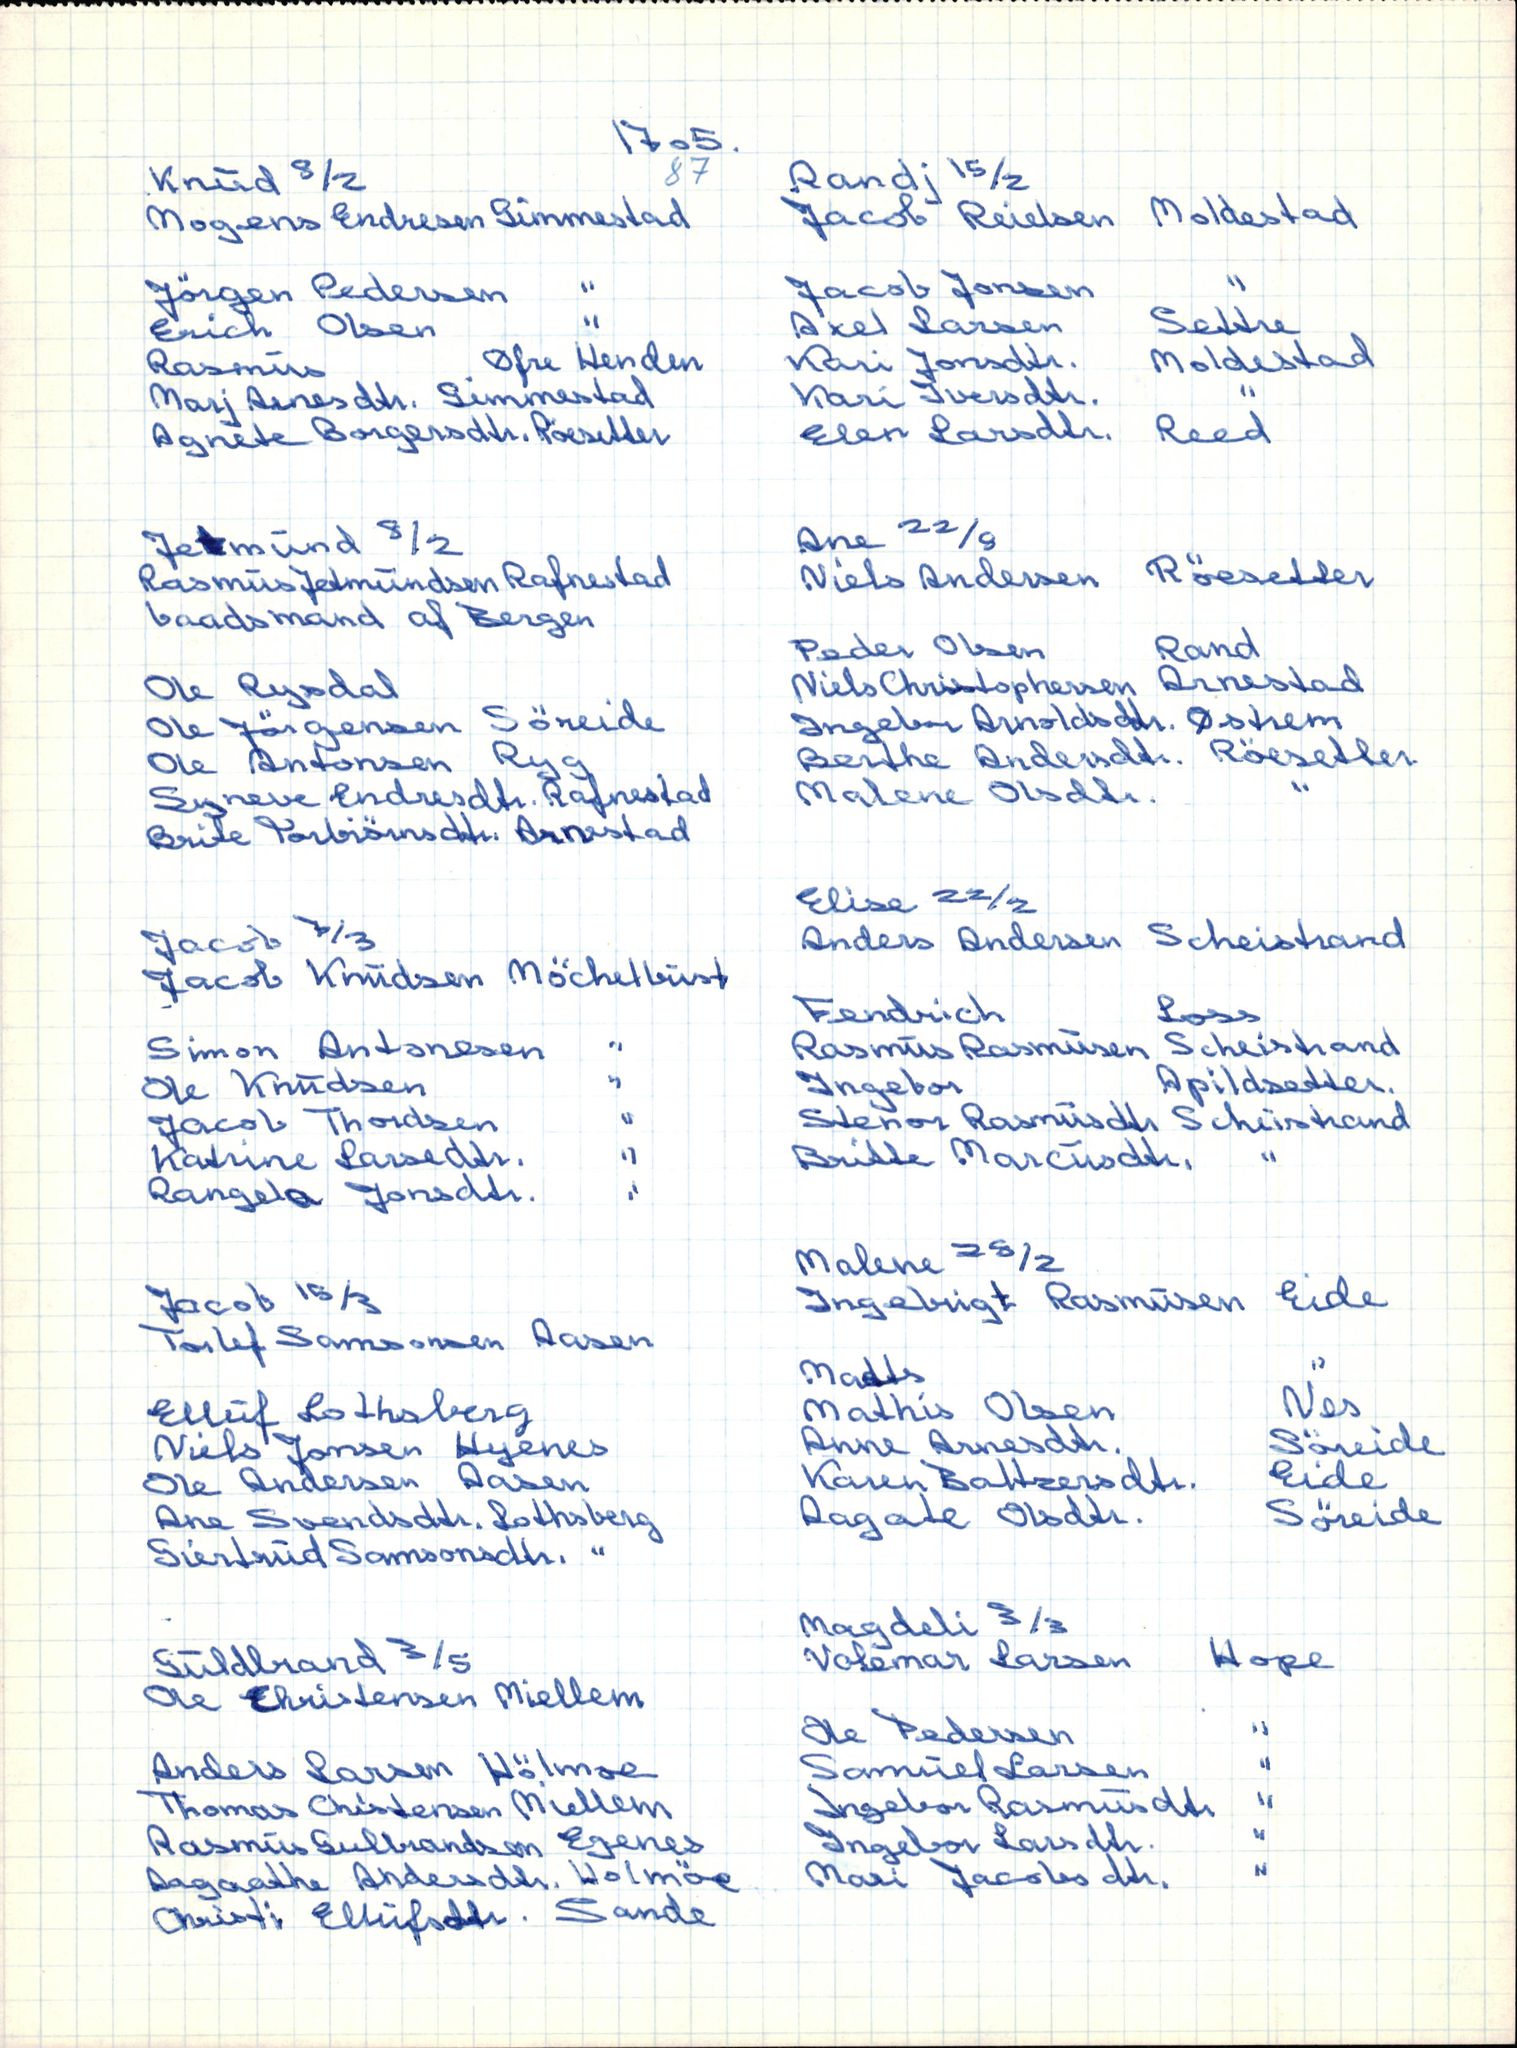 1705.
87
Knūd 8/2
Mogens Endresen Gimmestad
Jörgen Pedersen "
Erich Olsen "
Rasmūs Øfre Henden
Marj Arnesdtr. Gimmestad
Agnete Borgersdtr. Röesetter
Jetmūnd 8/2
Rasmūs Jetmūndsen Rafnestad
baadsmand af Bergen
Ole Rysdal
Ole Jörgensen Söreide
Ole Antonsen Ryg
Syneve Endresdtr. Rafnestad
Brite Torbiörnsdtr. Arnestad
Jacob 7/3
Jacob Knūdsen Möchelbūst
Simon Antonesen "
Ole Knūdsen "
Jacob Thordsen "
Katrine Larsedtr. "
Rangela Jonsdtr. "
Jacob 15/3
Torlef Samsonsen Aasen
Ellūf Lothsberg
Niels Jonsen Hyenes
Ole Andersen Aasen
Ane Svendsdtr. Lothsberg
Giertrūd Samsonsdtr. "
Gūldbrand 3/5
Ole Christensen Miellem
Anders Larsen Hölmoe
Thomas Christensen Miellem
Rasmūs Gulbrandsen Egenes
Aagaathe Andersdtr. Holmöe
Christi Ellūfsdtr. Sande
Randj 15/2
Jacob Reielsen Moldestad
Jacob Jonsen "
Axel Larsen Settre
Kari Jonsdtr. Moldestad
Kari Iversdtr. "
Elen Larsdtr. Reed
Ane 22/9
Niels Andersen Röesetter
Peder Olsen Rand
Niels Christophersen Arnestad
Ingebor Arnoldsdtr. Østrem
Berthe Andersdtr. Röesetter
Malene Olsdtr. "
Elise 22/2
Anders Andersen Scheistrand
Fendrich Loss
Rasmūs Rasmūsen Scheistrand
Ingebor Apildsetter.
Stenor Rasmūsdtr Scheistrand
Britte Marcūsdtr. "
Malene 28/2
Ingebrigt Rasmūsen Eide
Madts "
Mathis Olsen Nes
Anne Arnesdtr. Söreide
Karen Baltzersdtr. Eide
Aagate Olsdtr. Söreide
Magdeli 3/3
Volemar Larsen Hope
Ole Pedersen "
Samūel Larsen "
Ingebor Rasmūsdtr "
Ingebor Larsdtr. "
Mari Jacobsdtr. "